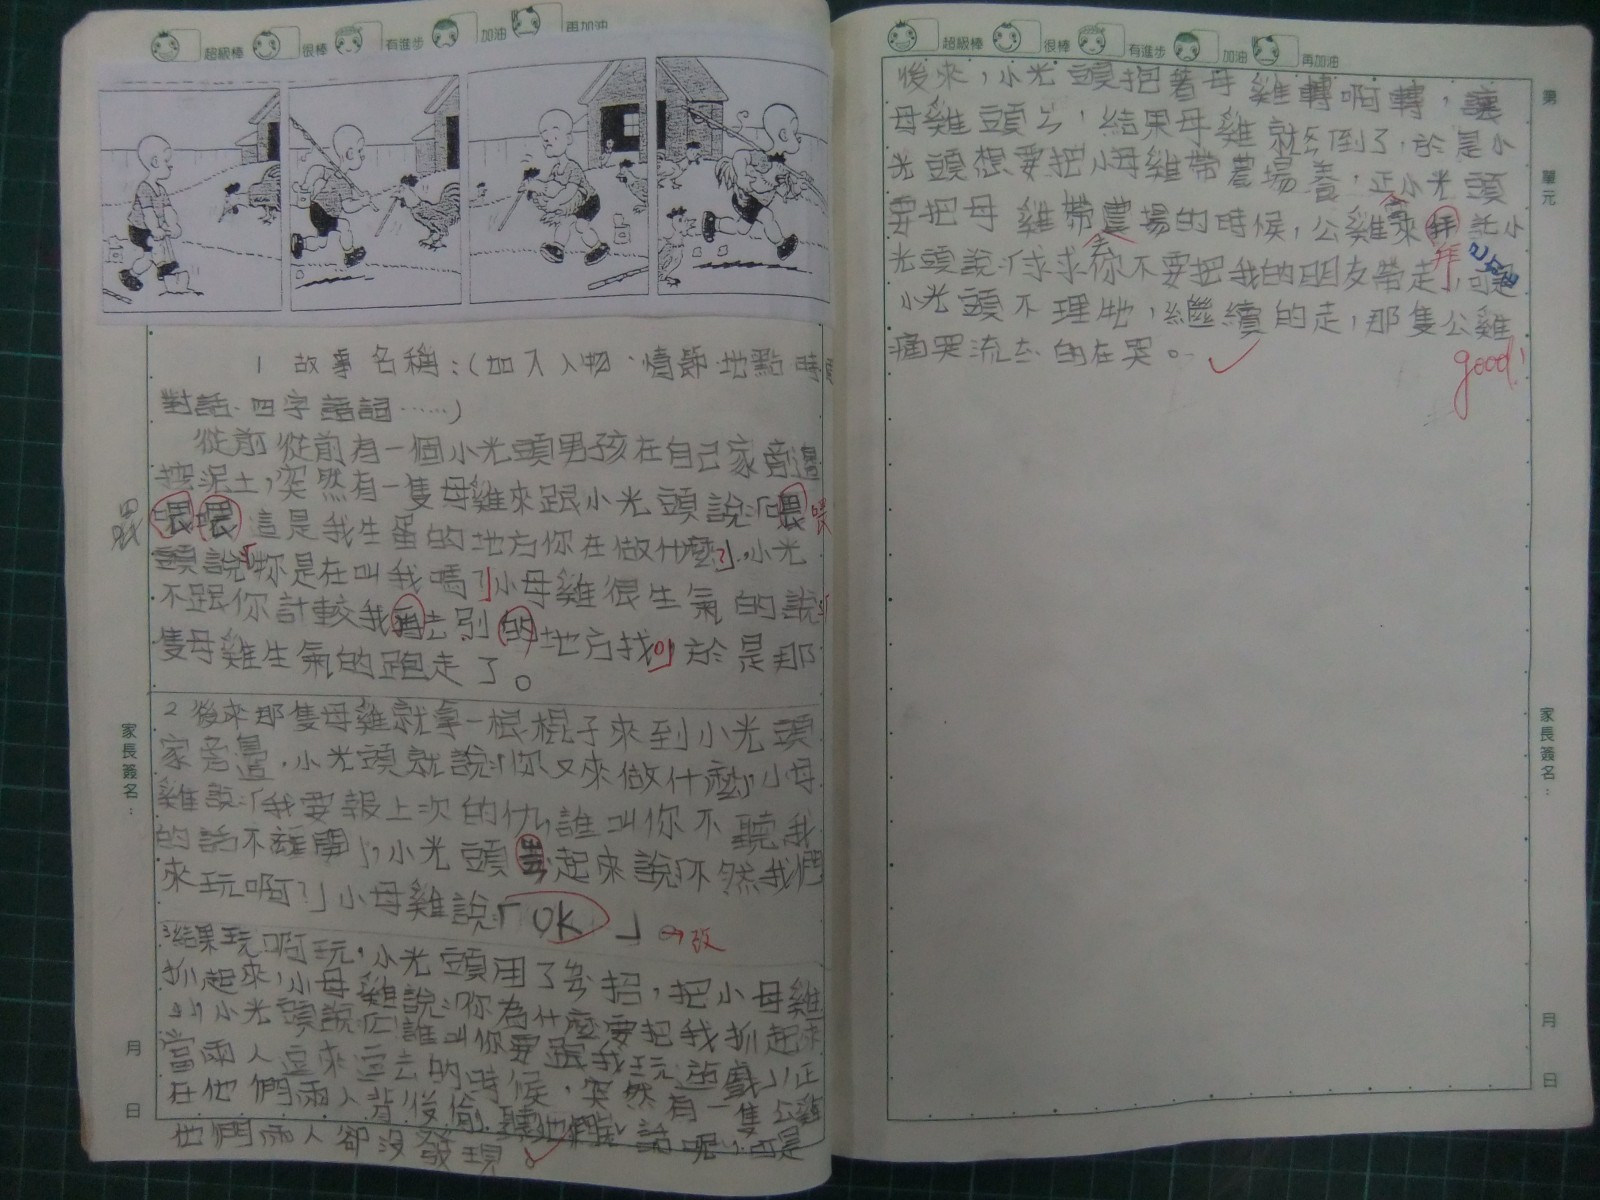 超級棒 很棒 有進步 加油 再加油
1 故事名稱:(加入人物、情節、地點、時
對話、四字語詞……)
從前從前有一個小光頭男孩在自己家旁邊
挖泥土,突然有一隻母雞來跟小光頭說:「喂 喂
喂喂這是我生蛋的地方你在做什麼?」,小光
頭說「妳是在叫我嗎?」小母雞很生氣的說:「
不跟你計較我再去別的地方找!」於是那
隻母雞生氣的跑走了。
2 後來那隻母雞就拿一根棍子來到小光頭
家旁邊,小光頭就說:「你又來做什麼」小母
雞說:「我要報上次的仇,誰叫你不聽我
的話不離開」,小光頭 起來說「不然我們
來玩啊?」小母雞說:「OK」 改
3 結果玩啊玩,小光頭用了 招,把小母雞
抓起來,小母雞說:「你為什麼要把我抓起來
」小光頭說:「誰叫你要跟我玩遊戲」正
當兩人逗來逗去的時候,突然有一隻公雞
在他們兩人背後偷聽他們說話呢!可是
他們兩人卻沒發現。
家長簽名:
月
日
超級棒 很棒 有進步 加油 再加油
後來,小光頭抱著母雞轉啊轉,讓
母雞頭ㄩㄣ,結果母雞就ㄩㄣ倒了,於是小
光頭想要把小母雞帶農場養,正小光頭
要把母雞帶農場的時候,公雞來拜託小
去
拜
光頭說:「求求你不要把我的朋友帶走」,可是
小光頭不理牠,繼續的走,那隻公雞
痛哭流 的在哭。
good!
第
單元
家長簽名:
月
日